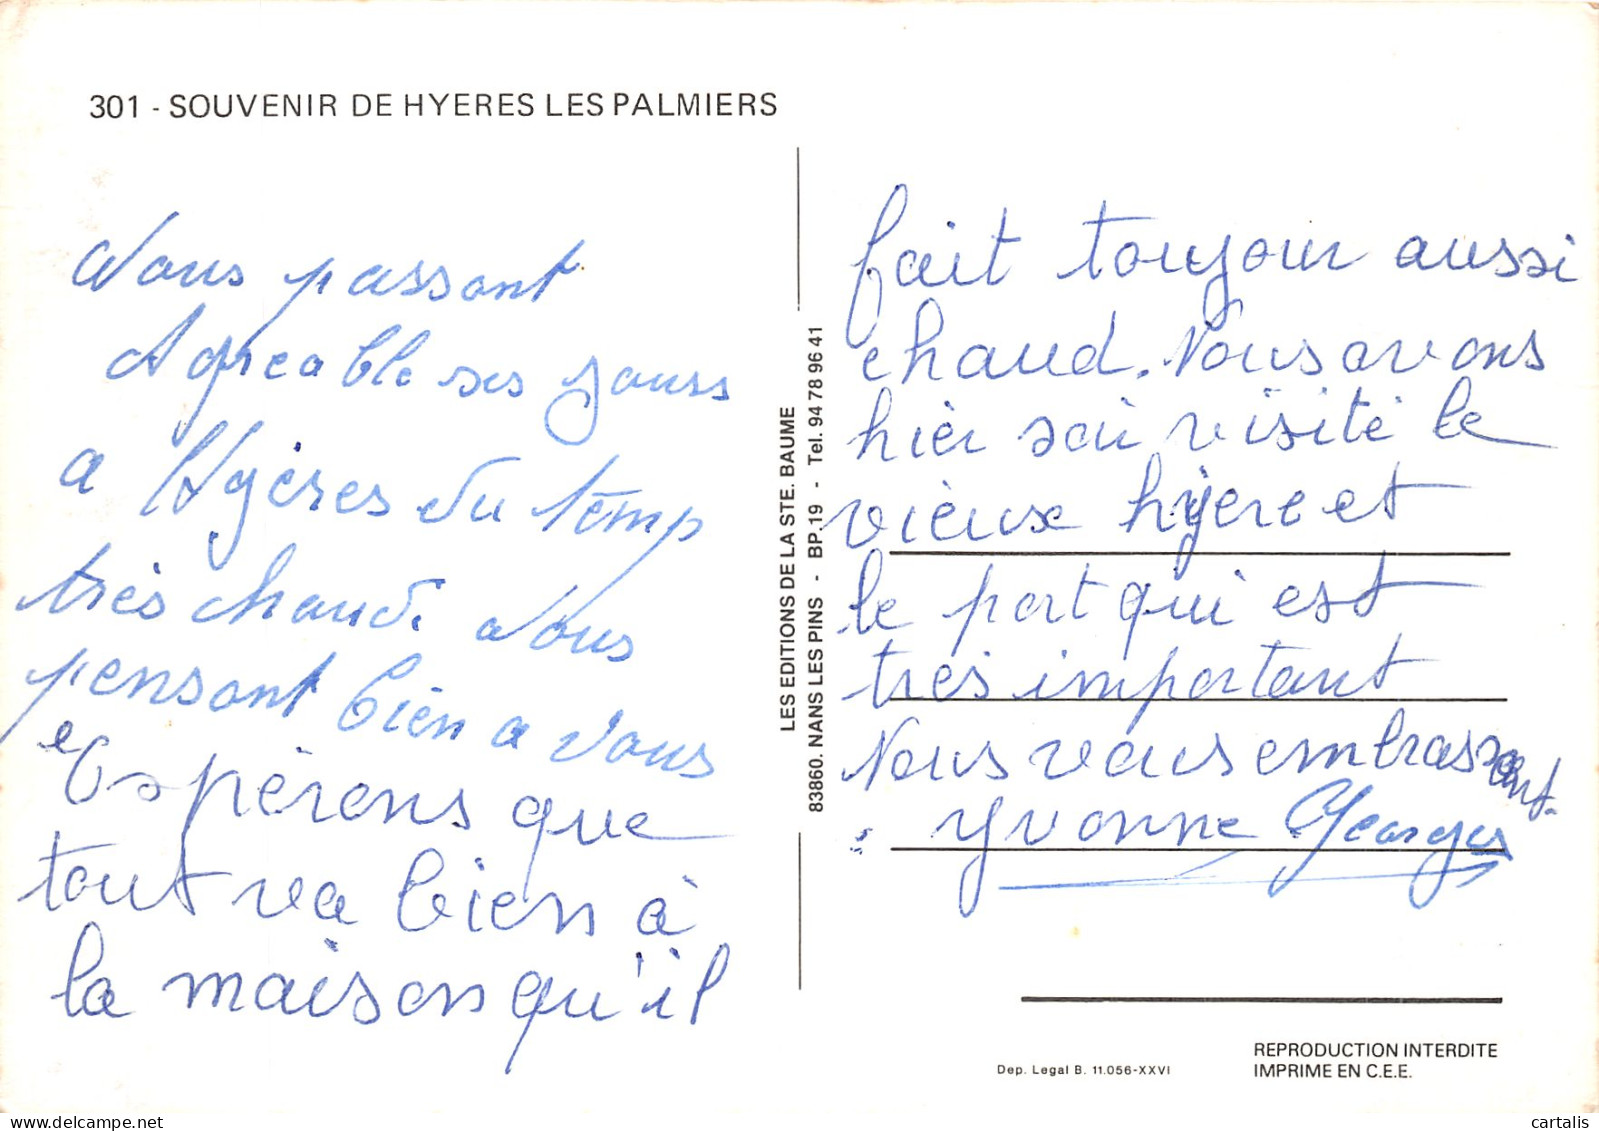 301 - SOUVENIR DE HYERES LES PALMIERS
Nous passont
Agreable ses jours
a Hyères du temp
très chaud. Nous
pensont bien a vous
Espérons que
tout va bien à
la maison qu'il
LES EDITIONS DE LA STE. BAUME
83860. NANS LES PINS - BP.19 - Tel. 94 78 96 41
fait toujour aussi
chaud. Nous avons
hier soir visité le
vieux hyere et
le port qui est
très important
Nous vous embrassont.
Yvonne Georges
Dep. Legal B. 11.056-XXVI
REPRODUCTION INTERDITE
IMPRIME EN C.E.E.
cartalis